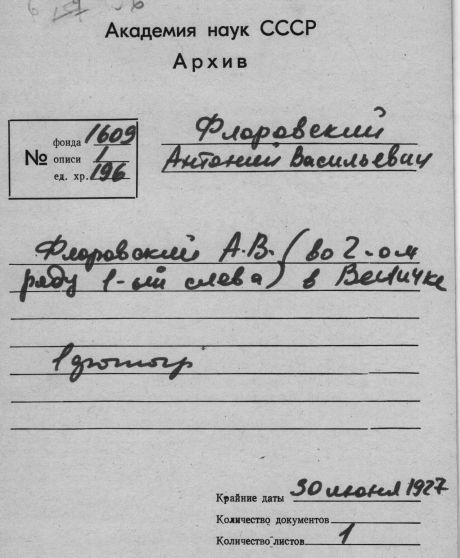 Академия наук СССР
Архив
№
фонда 1609
описи 1
ед. хр. 196
Флоровский
Антоний Васильевич
Флоровский А.В. (во 2-ом
ряду 1-ый слева) в Величке
1 фотогр
Крайние даты 30 июня 1927
Количество документов
Количество листов 1